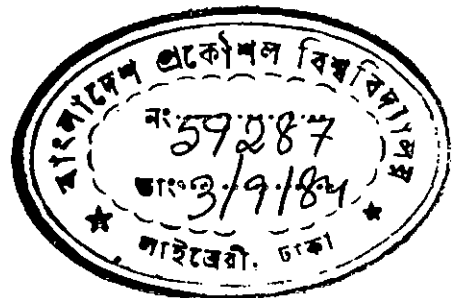 বাংলাদেশ প্রকৌশল বিশ্ববিদ্যালয়
নং 59287
তাং 3/9/84
লাইব্রেরী, ঢাকা